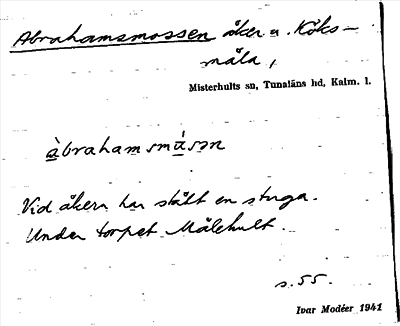 Abrahamsmossen åker u. Köks-
måla,
Misterhults sn, Tunaläns hd, Kalm. l.
àbrahamsmú̀sən
Vid åkern har stått en stuga.
Under torpet Målehult.
s. 55.
Ivar Modéer 1941